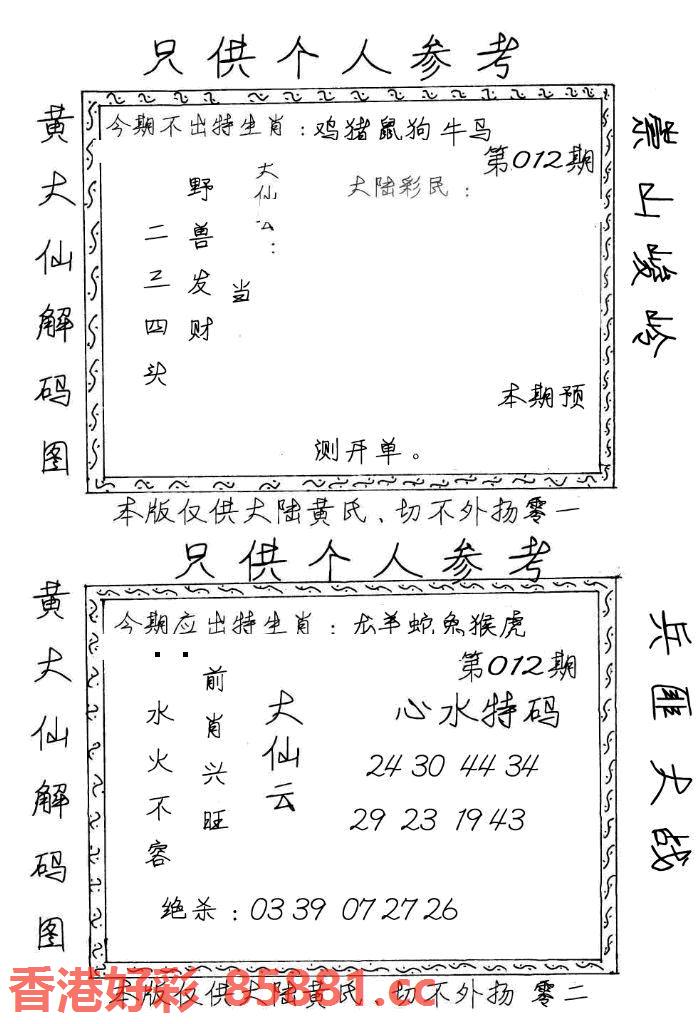 只供个人参考
黄大仙解码图
今期不出特生肖：鸡猪鼠狗牛马
第012期
大陆彩民：
大仙云：
野兽发财
二三四头
当
本期预
测开单。
崇山峻岭
本版仅供大陆黄氏、切不外扬零一
只供个人参考
黄大仙解码图
今期应出特生肖：龙羊蛇兔猴虎
第012期
大仙云
前肖兴旺
水火不容
心水特码
24 30 44 34
29 23 19 43
绝杀：03 39 07 27 26
兵匪大战
本版仅供大陆黄氏、切不外扬 零二
香港好彩 85881.cc